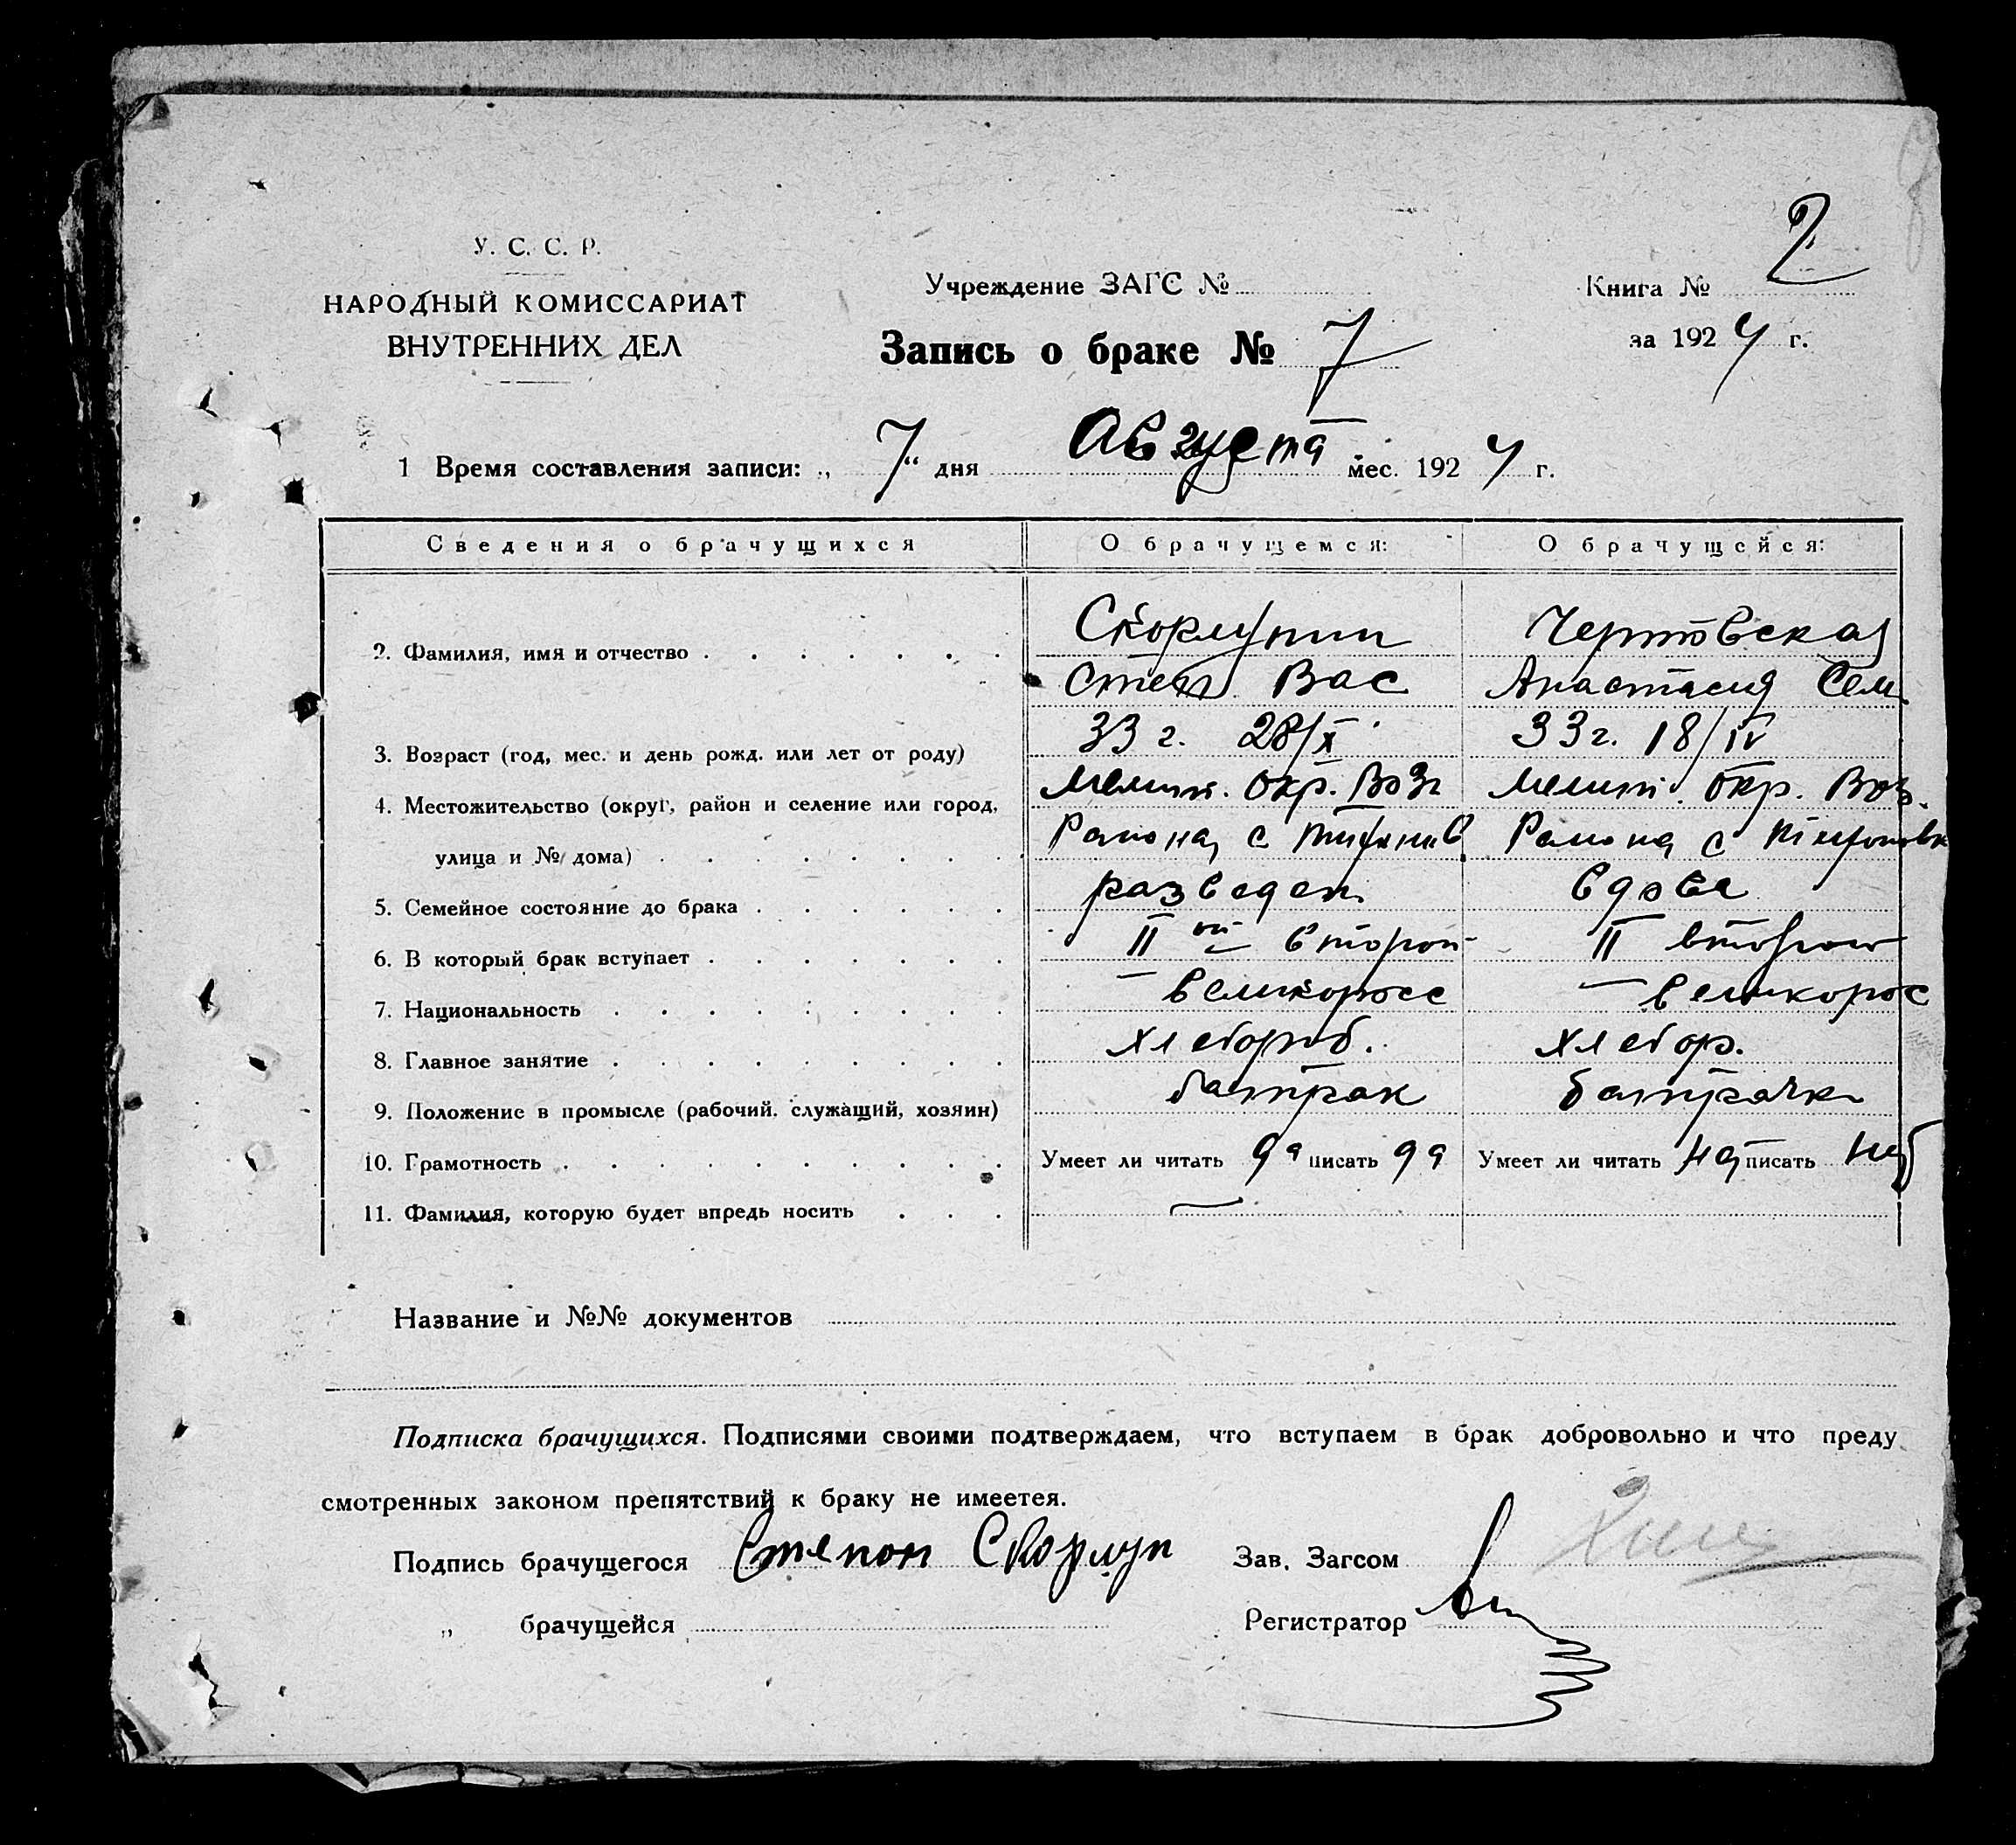 2
У. С. С. Р.
НАРОДНЫЙ КОМИССАРИАТ
ВНУТРЕННИХ ДЕЛ
Учреждение ЗАГС №
Книга №
за 1924 г.
Запись о браке № 7
1 Время составления записи: „ 7“ дня Августа мес. 1924 г.
Сведения о брачущихся О брачущемся: О брачущейся:
2. Фамилия, имя и отчество Скорлупин Чертовская
Степ Вас Анастасия Сем
3. Возраст (год, мес. и день рожд. или лет от роду) 33 г. 28/X 33 г. 18/IV
4. Местожительство (округ, район и селение или город, Мелит. Окр. Воз Мелит. Окр. Воз.
улица и № дома) Района с Района с
5. Семейное состояние до брака разведен вдова
6. В который брак вступает II ой второй II второй
7. Национальность — великоросс — великорос
8. Главное занятие хлебороб. хлебор.
9. Положение в промысле (рабочий, служащий, хозяин) батрак батрачка
10. Грамотность Умеет ли читать да писать да Умеет ли читать писать
11. Фамилия, которую будет впредь носить —
Название и №№ документов
Подписка брачущихся. Подписями своими подтверждаем, что вступаем в брак добровольно и что преду
смотренных законом препятствий к браку не имеетея.
Подпись брачущегося Степон Скорлуп Зав. Загсом
„ брачущейся Регистратор